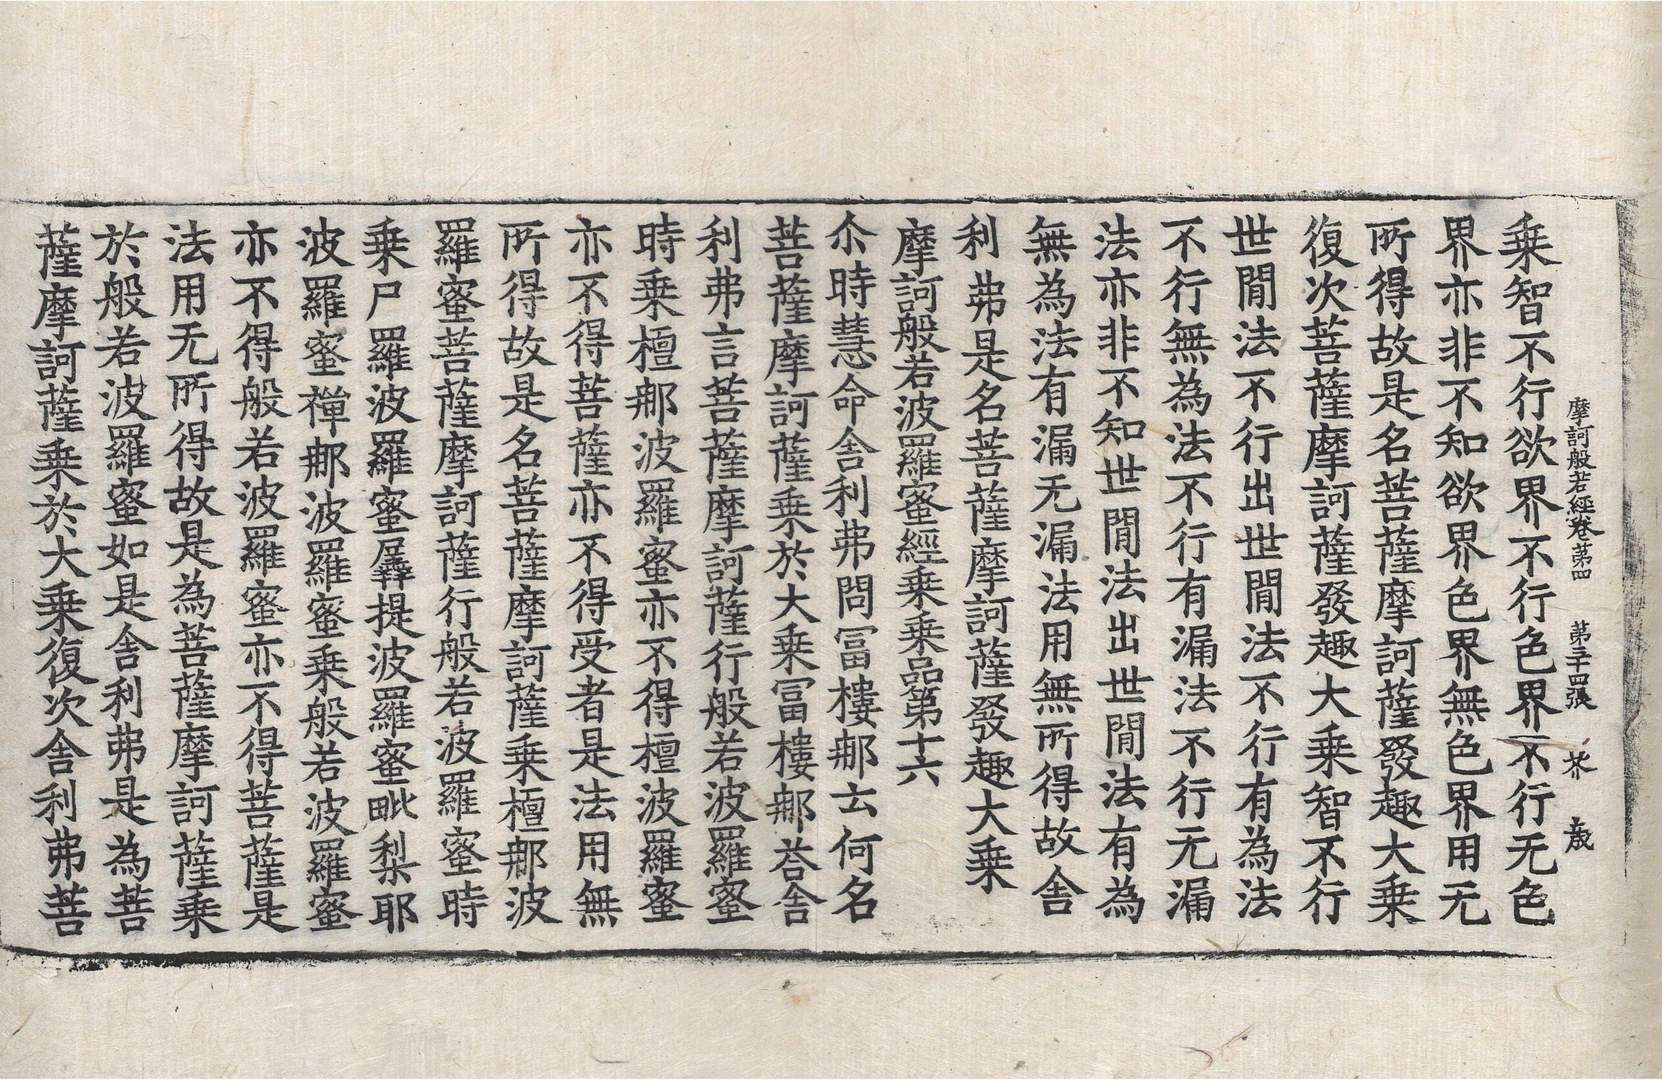 摩訶般若經卷第四 第三十四張 芥 歲
乗智不行欲界不行色界不行无色
界亦非不知欲界色界無色界用无
所得故是名菩薩摩訶薩發趣大乗
復次菩薩摩訶薩發趣大乗智不行
世閒法不行出世閒法不行有為法
不行無為法不行有漏法不行无漏
法亦非不知世閒法出世閒法有為
無為法有漏无漏法用無所得故舍
利弗是名菩薩摩訶薩發趣大乗
摩訶般若波羅蜜經乗乗品第十六
尒時慧命舍利弗問冨樓那云何名
菩薩摩訶薩乗於大乗冨樓那荅舍
利弗言菩薩摩訶薩行般若波羅蜜
時乗檀那波羅蜜亦不得檀波羅蜜
亦不得菩薩亦不得受者是法用無
所得故是名菩薩摩訶薩乗檀那波
羅蜜菩薩摩訶薩行般若波羅蜜時
乗尸羅波羅蜜羼提波羅蜜毗梨耶
波羅蜜禪那波羅蜜乗般若波羅蜜
亦不得般若波羅蜜亦不得菩薩是
法用无所得故是為菩薩摩訶薩乗
於般若波羅蜜如是舍利弗是為菩
薩摩訶薩乗於大乗復次舍利弗菩